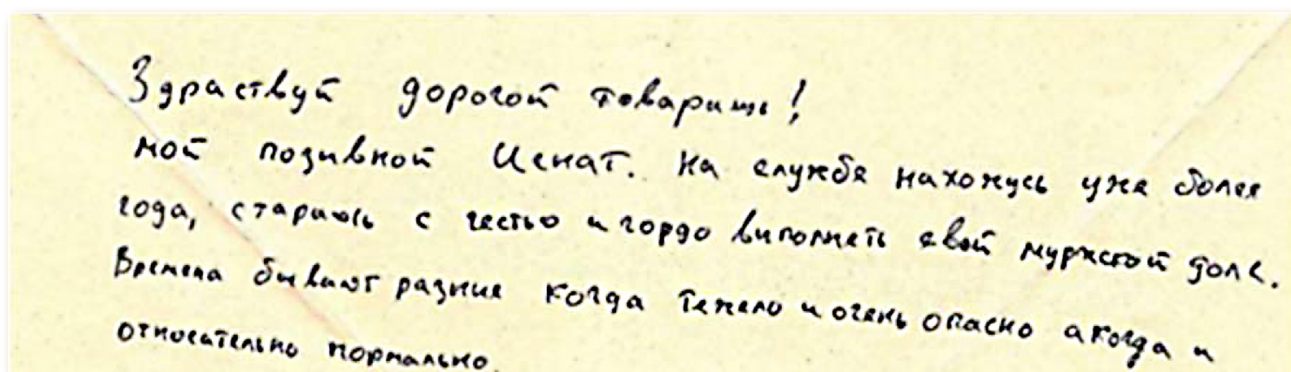 Здраствуй дорогой товарищь!
мой позывной Исмат. На службе нахожусь уже более
года, стараюсь с честью и гордо виполнять свой мужской долг.
Времена бывают разние когда тяжело и очень опасно а когда и
относительно нормально.